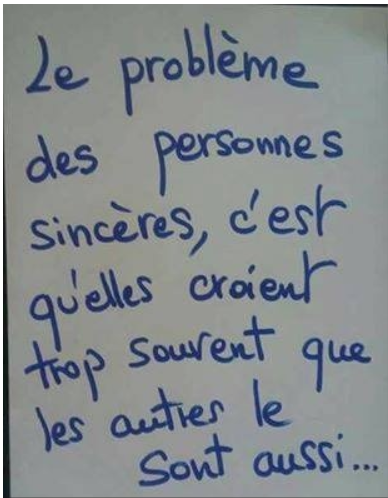 Le problème
des personnes
sincères, c'est
qu'elles croient
trop souvent que
les autres le
sont aussi...